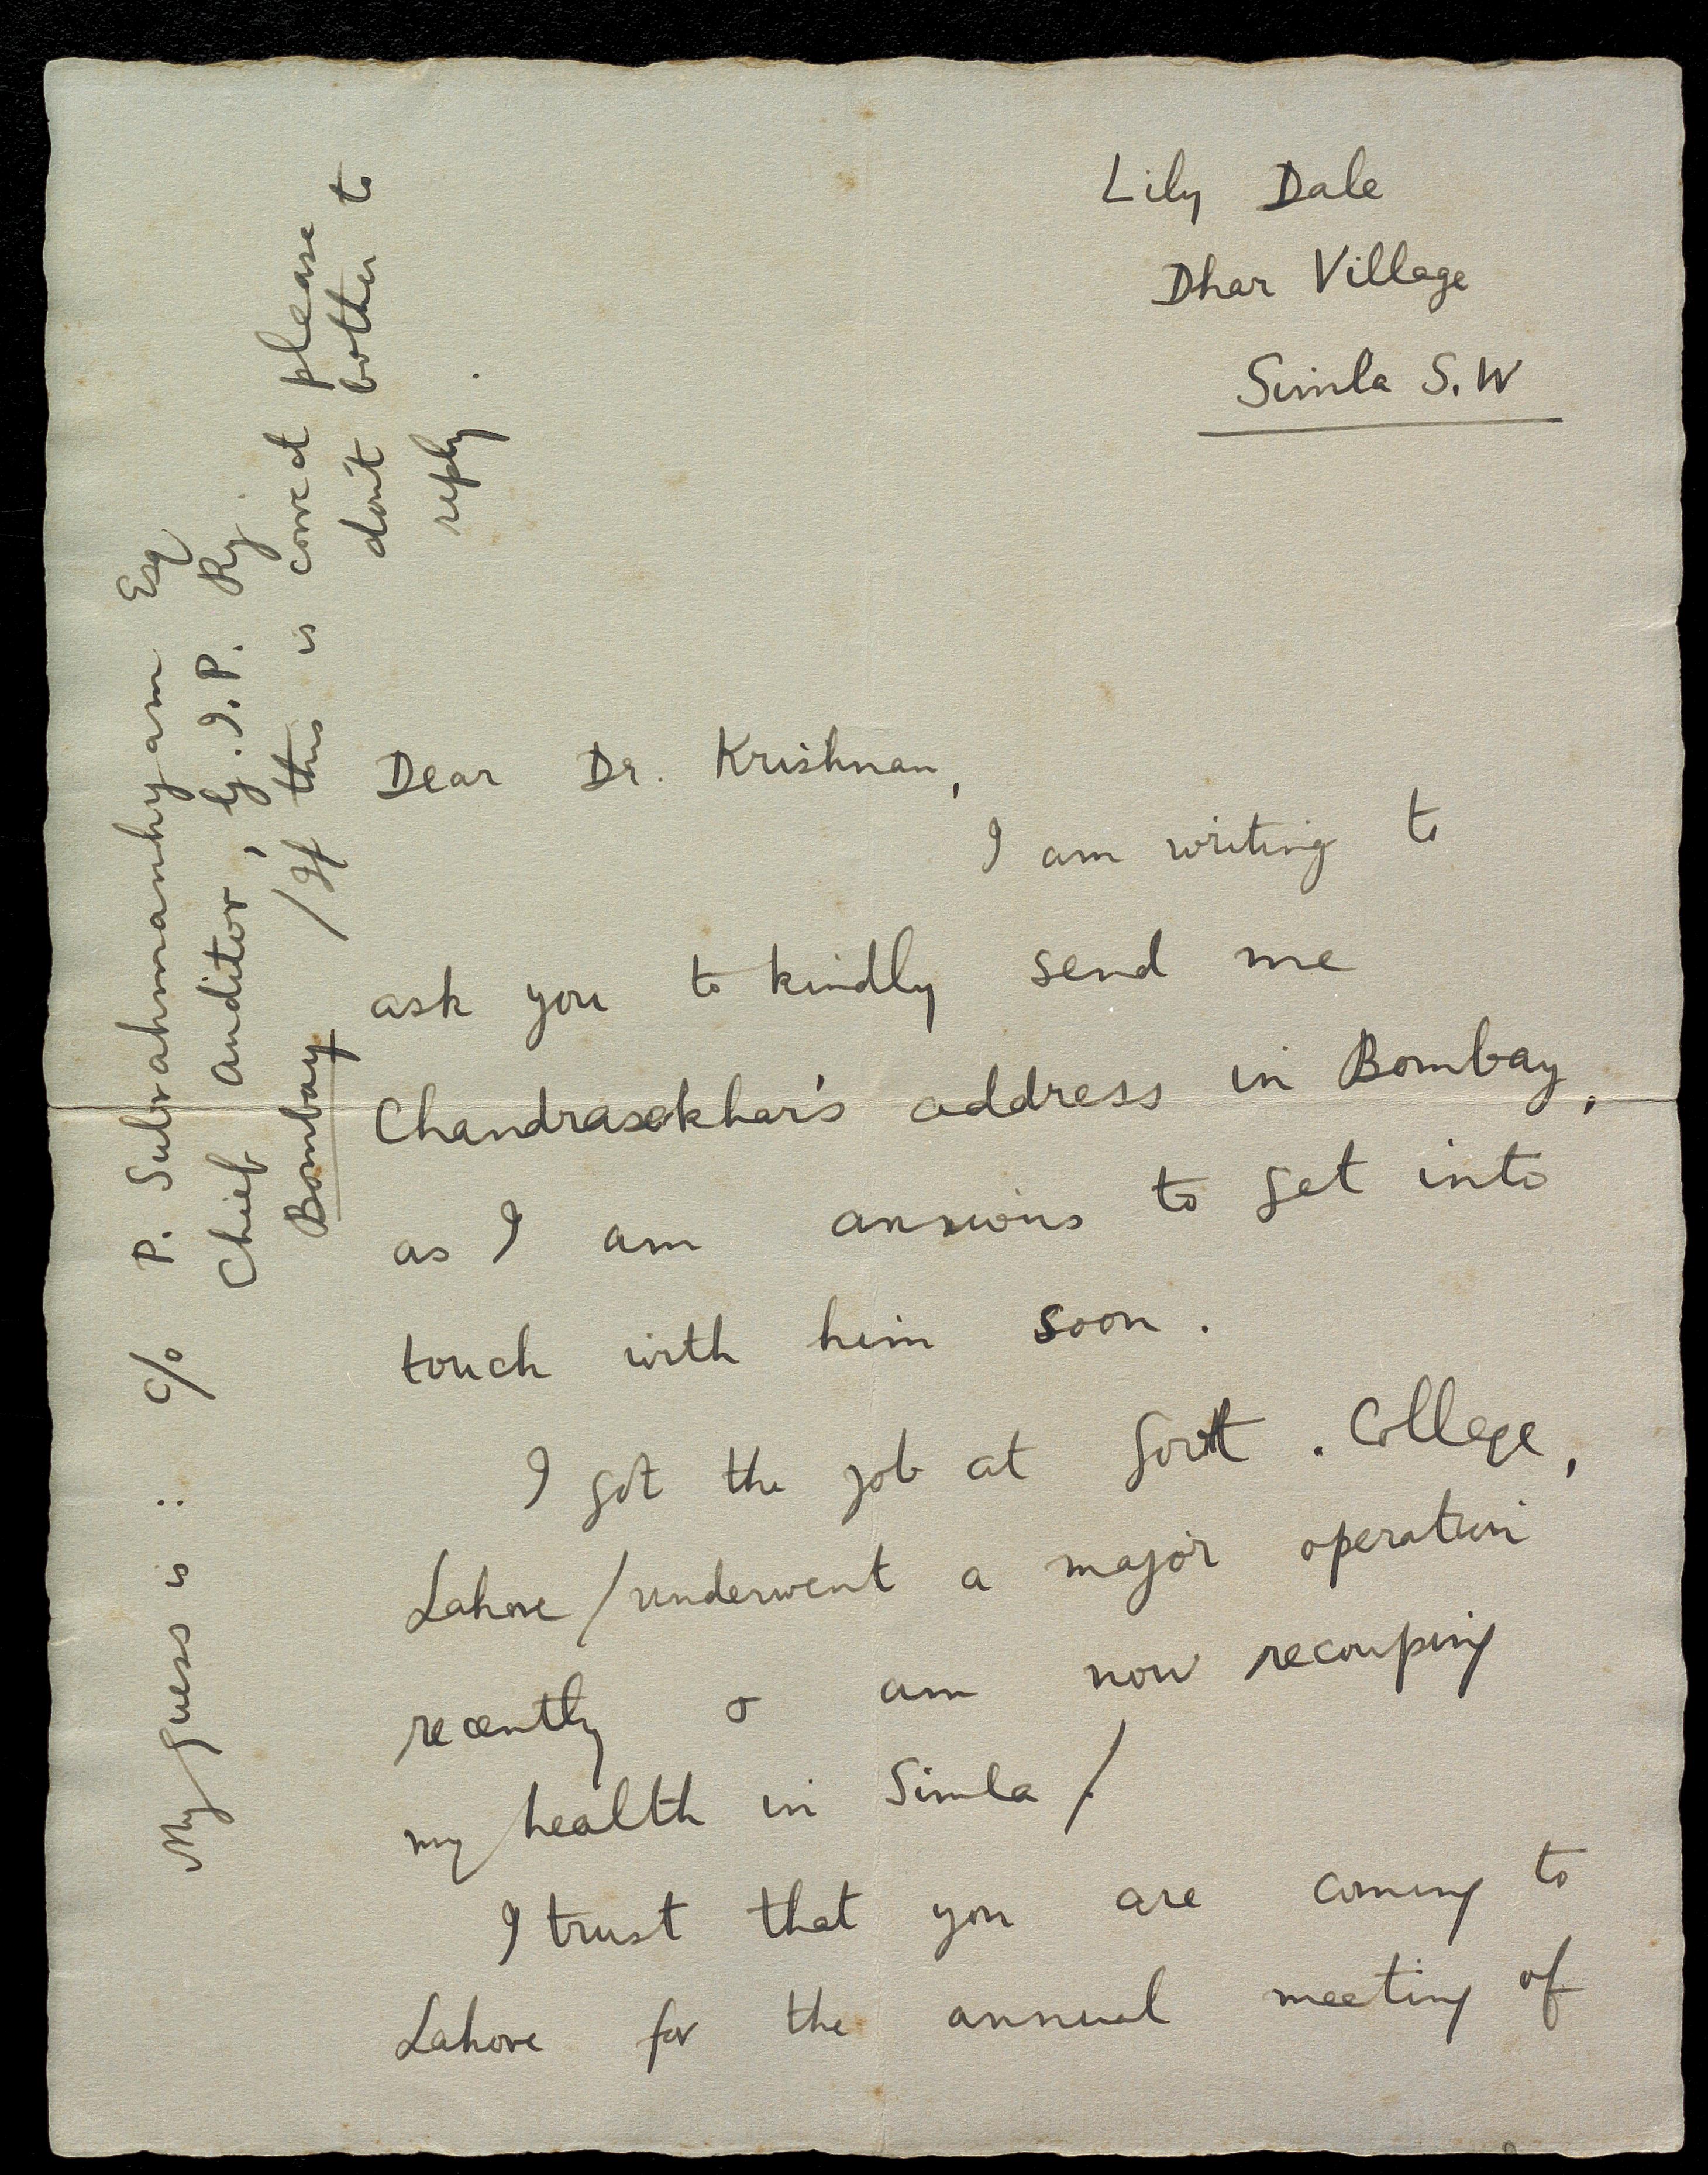 Lily Dale
Dhar Village
Simla S.W
Dear Dr. Krishnan,
I am writing to
ask you to kindly send me
Chandrasekhar's address in Bombay,
as I am anxious to get into
touch with him soon.
I got the job at Govt. College,
Lahore / underwent a major operation
recently & am now recouping
my health in Simla /
I trust that you are coming to
Lahore for the annual meeting of
My guess is : c/o P. Subrahmanhyam Esq
Chief Auditor, G.I.P. Ry.
Bombay / If this is correct please
don't bother to
reply.